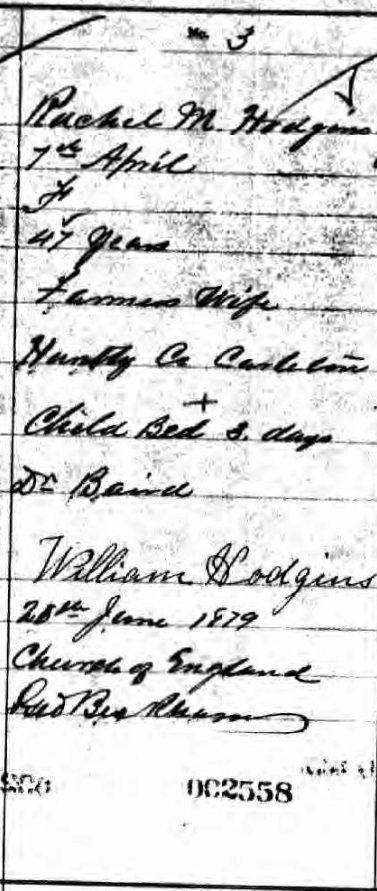 No. 3
Rachel M. Hodgins
7th April
F
47 years
Farmers Wife
Huntly Co Carleton
+
Child Bed 3. days
Dr Baird
William Hodgins
28th June 1879
Church of England
002558